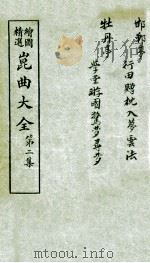 邯鄲夢
行田賜枕入夢雲法
牡丹亭
學堂遊園驚夢尋夢
繪圖
精選
崑曲大全
第二集
www.mtoou.info